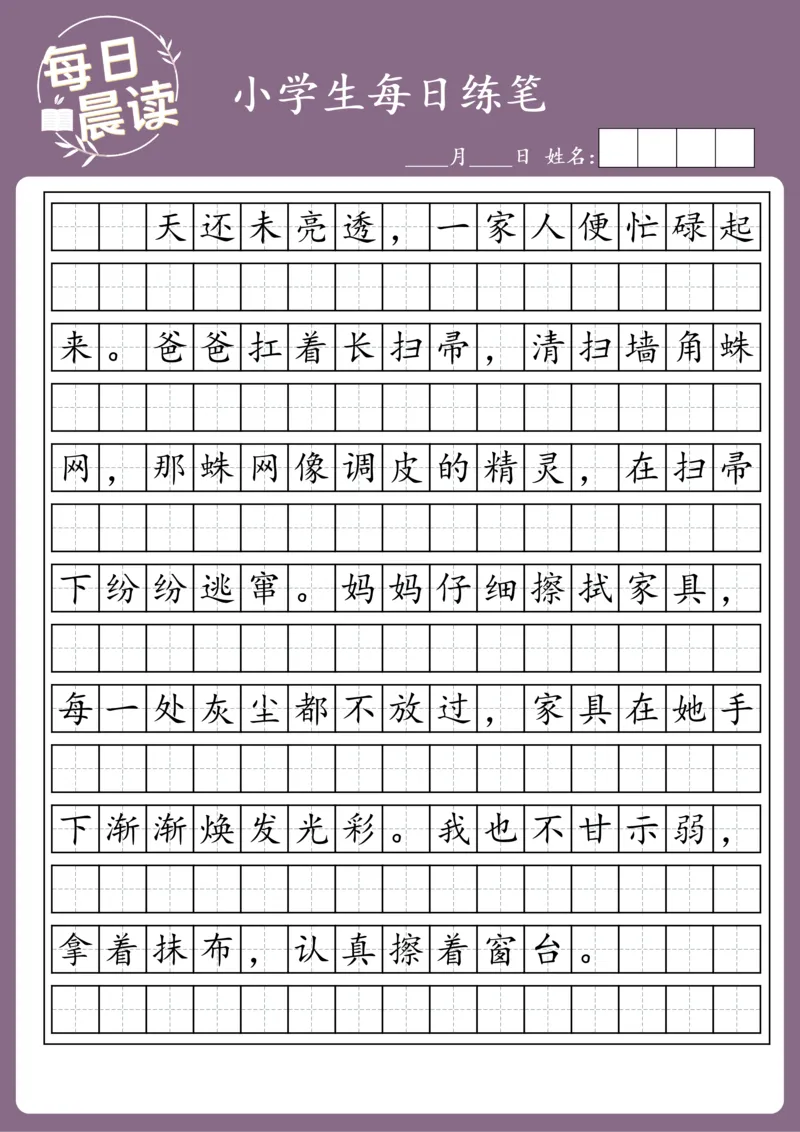 每日
晨读
小学生每日练笔
____月____日 姓名:
天还未亮透，一家人便忙碌起
来。爸爸扛着长扫帚，清扫墙角蛛
网，那蛛网像调皮的精灵，在扫帚
下纷纷逃窜。妈妈仔细擦拭家具，
每一处灰尘都不放过，家具在她手
下渐渐焕发光彩。我也不甘示弱，
拿着抹布，认真擦着窗台。